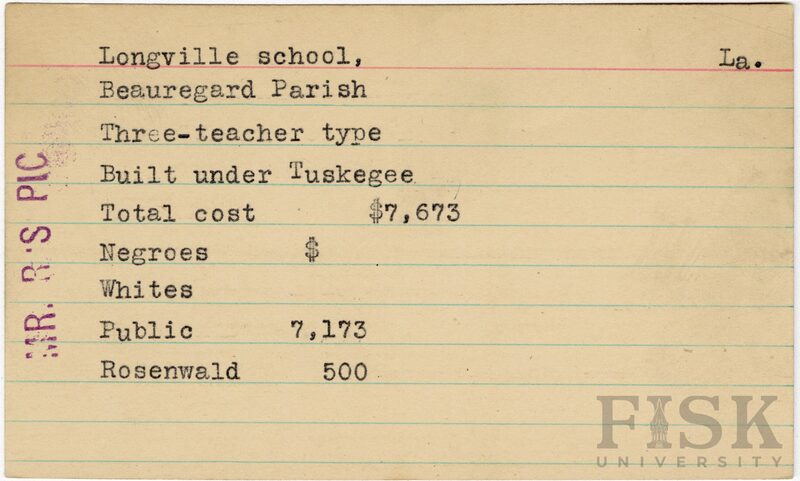 Longville school, La.
Beauregard Parish
Three-teacher type
Built under Tuskegee
Total cost $7,673
Negroes $
Whites
Public 7,173
Rosenwald 500
MR. R'S PIC
FISK
UNIVERSITY